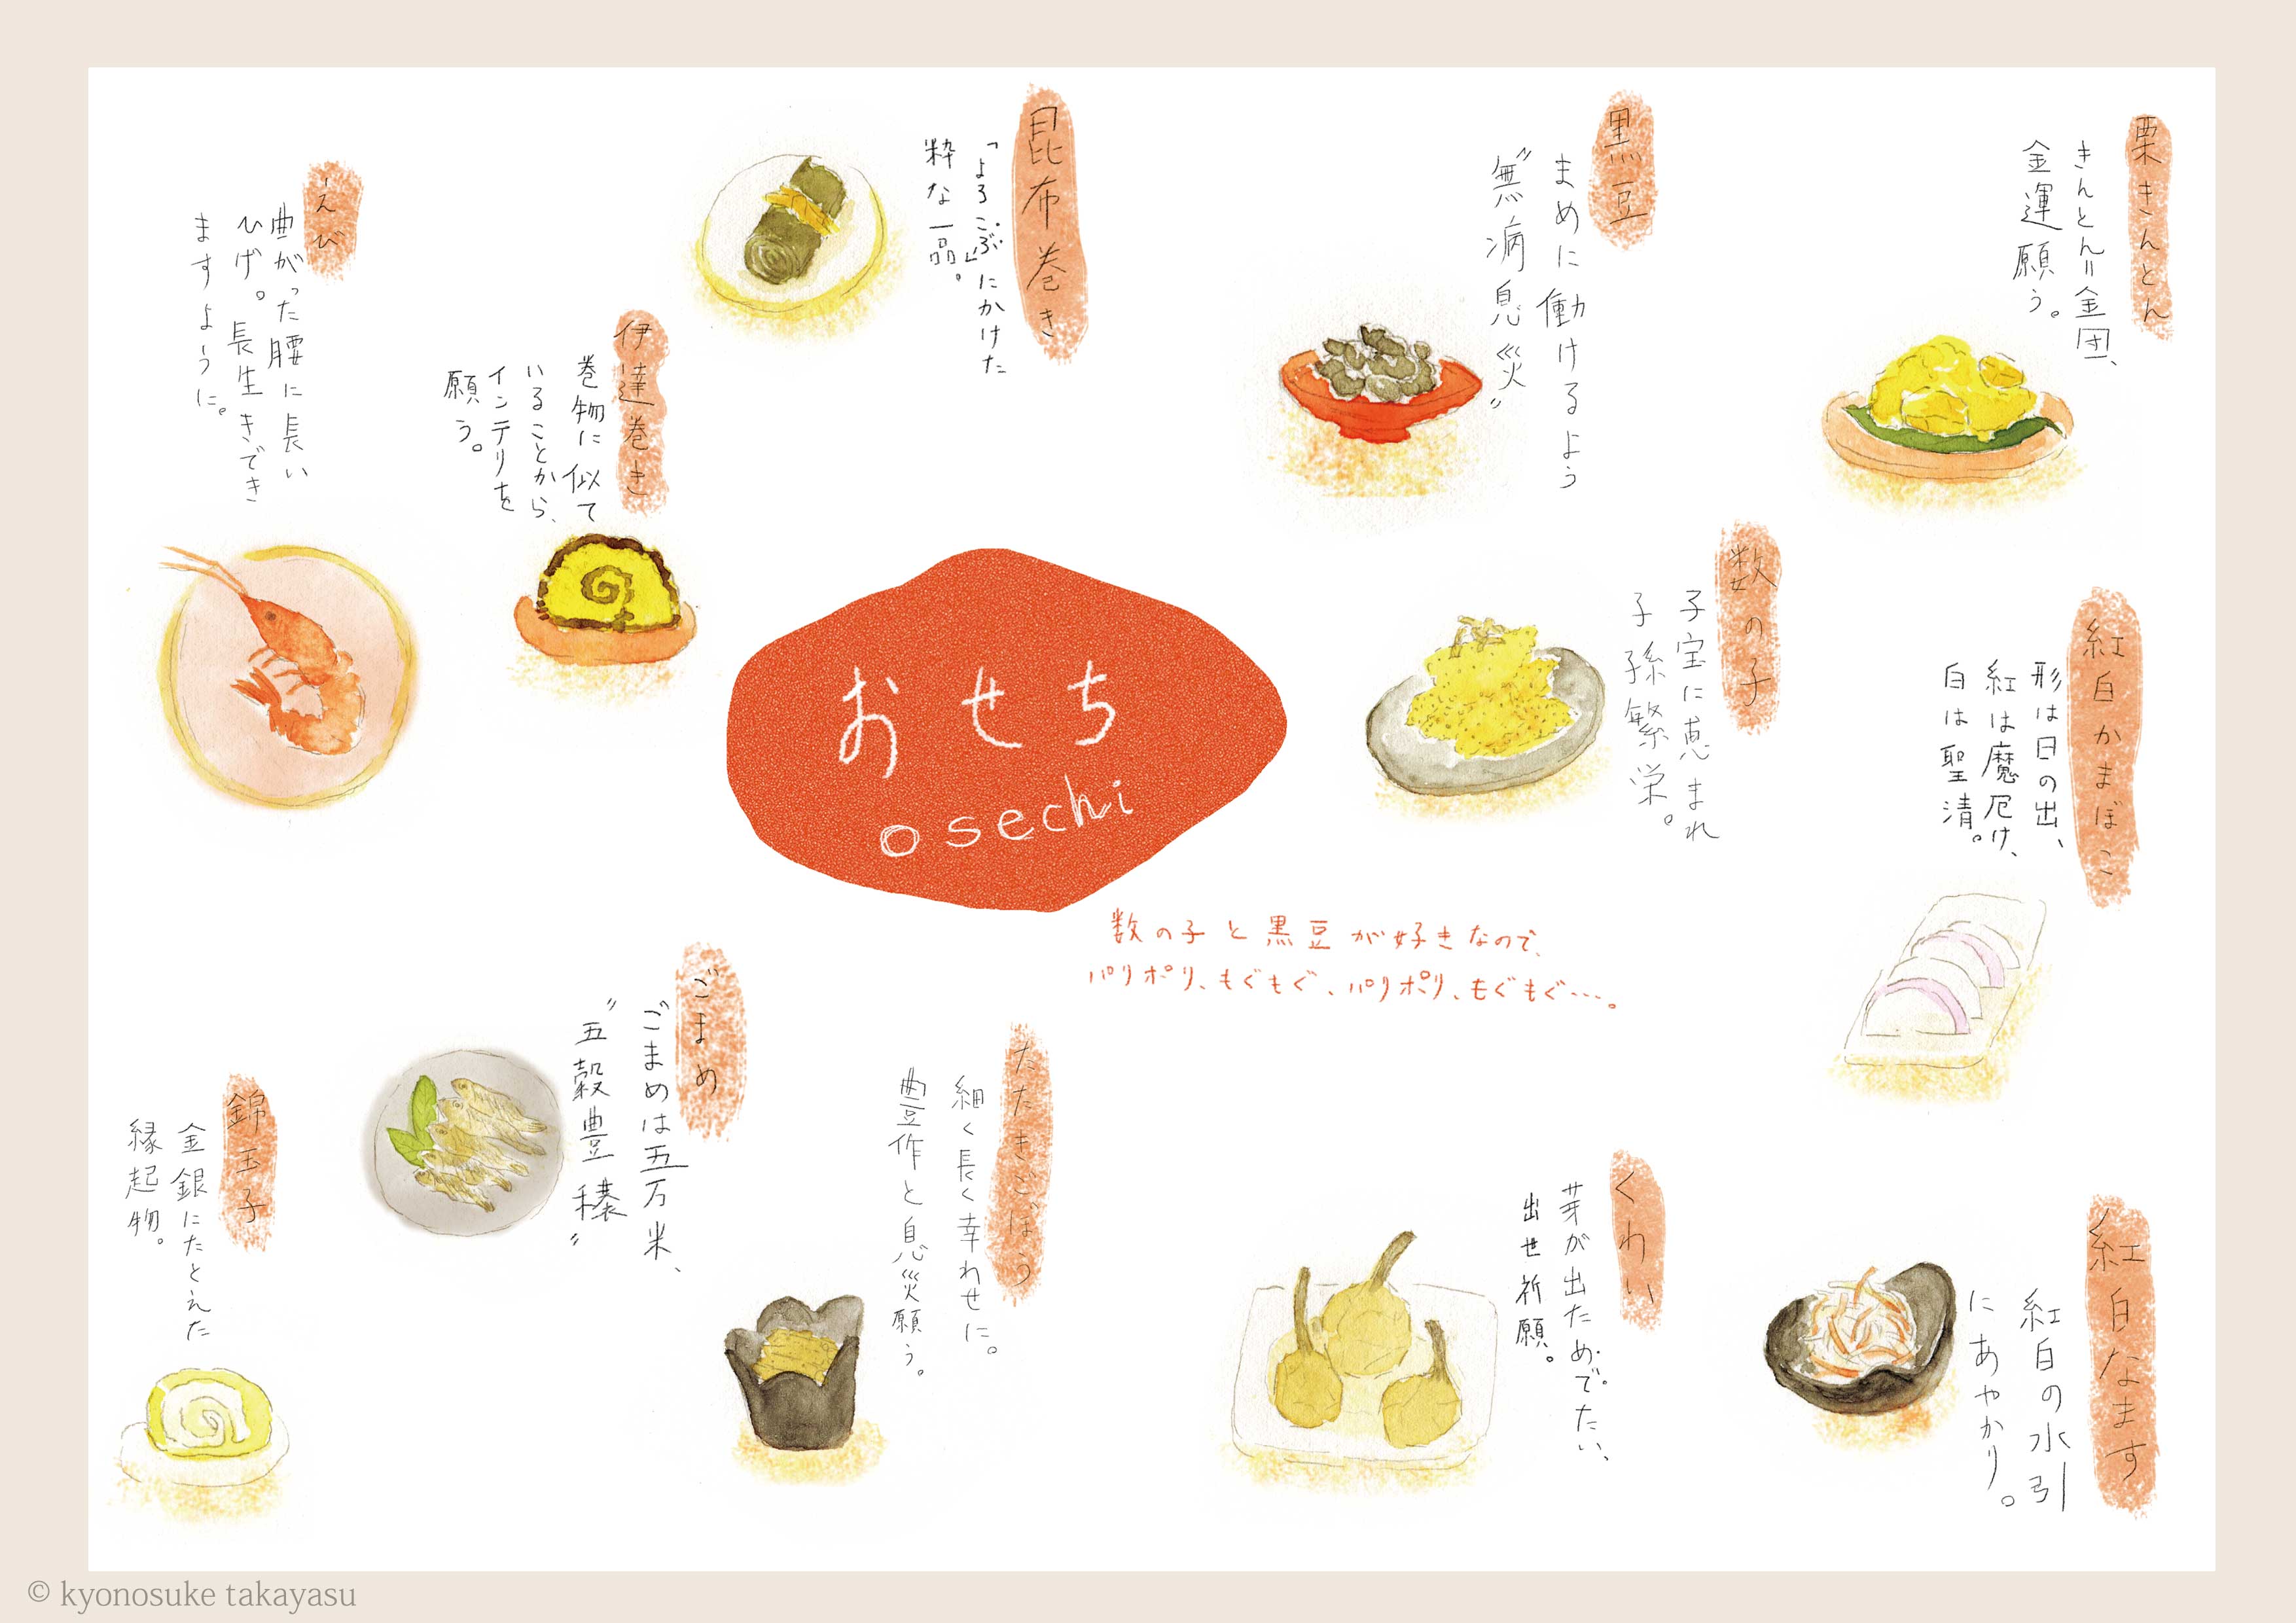 栗きんとん
きんとん=金団、
金運願う。
黒豆
まめに働けるよう
〝無病息災〟
昆布巻き
「よろこぶ」にかけた
粋な一品。
えび
曲がった腰に長い
ひげ。長生きでき
ますように。
伊達巻き
巻物に似て
いることから、
インテリを
願う。
数の子
子宝に恵まれ
子孫繁栄。
紅白かまぼこ
形は日の出、
紅は魔厄け、
白は聖清。
おせち
osechi
数の子と黒豆が好きなので、
パリポリ、もぐもぐ、パリポリ、もぐもぐ…。
紅白なます
紅白の水引
にあやかり。
くわい
芽が出ためでたい、
出世祈願。
たたきごぼう
細く長く幸わせに。
豊作と息災願う。
ごまめ
ごまめは五万米、
〝五穀豊穣〟
錦玉子
金銀にたとえた
縁起物。
© kyonosuke takayasu